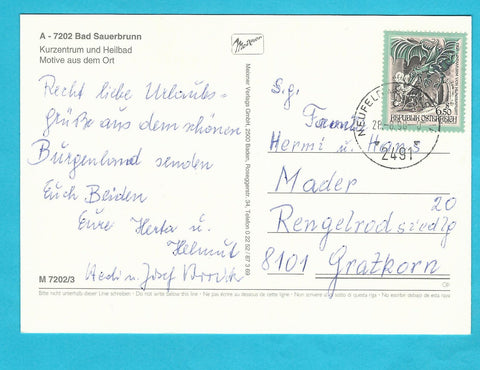 A - 7202 Bad Sauerbrunn
Kurzentrum und Heilbad
Motive aus dem Ort
Recht liebe Urlaubs-
grüße aus dem schönen
Burgenland senden
Euch Beiden
Eure Herta u.
Helmut
Hedi u. Josef
M 7202/3
Bitte nicht unterhalb dieser Linie schreiben - Do not write below this line - Ne pas écrire au dessous de cette ligne - Non scrivere al di sotto di questa riga - No escriber debajo de esta raya
Mexxner Verlags GmbH, 2500 Baden, Roseggerstr. 34, Telefon 0 22 52 / 87 3 69
S.g.
Hermi u.
Mader
20
Rengelrodsiedlg
8101 Gratkorn
6,50
REPUBLIK ÖSTERREICH
2491